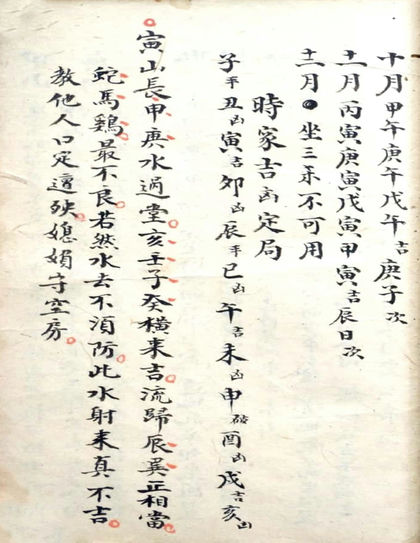 十月甲午庚午戊午吉庚子次
十一月丙寅庚寅戊寅甲寅吉辰日次
十二月●坐三来不可用
時家吉凶定局
子平丑凶寅吉卯凶辰平巳凶午吉未凶申破酉凶戌吉亥凶
寅山長申庚水過堂亥壬子癸橫来吉流歸辰巽正相當
蛇馬鷄最不良若然水去不須防此水射来真不吉
教他人口定遭殃媳媚守空房